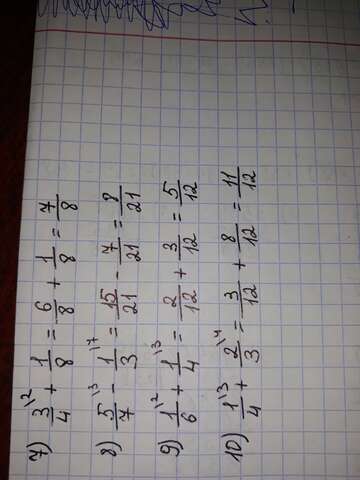 7) 3/4 \2 + 1/8 = 6/8 + 1/8 = 7/8
8) 5/7 \3 - 1/3 \7 = 15/21 - 7/21 = 8/21
9) 1/6 \2 + 1/4 \3 = 2/12 + 3/12 = 5/12
10) 1/4 \3 + 2/3 \4 = 3/12 + 8/12 = 11/12